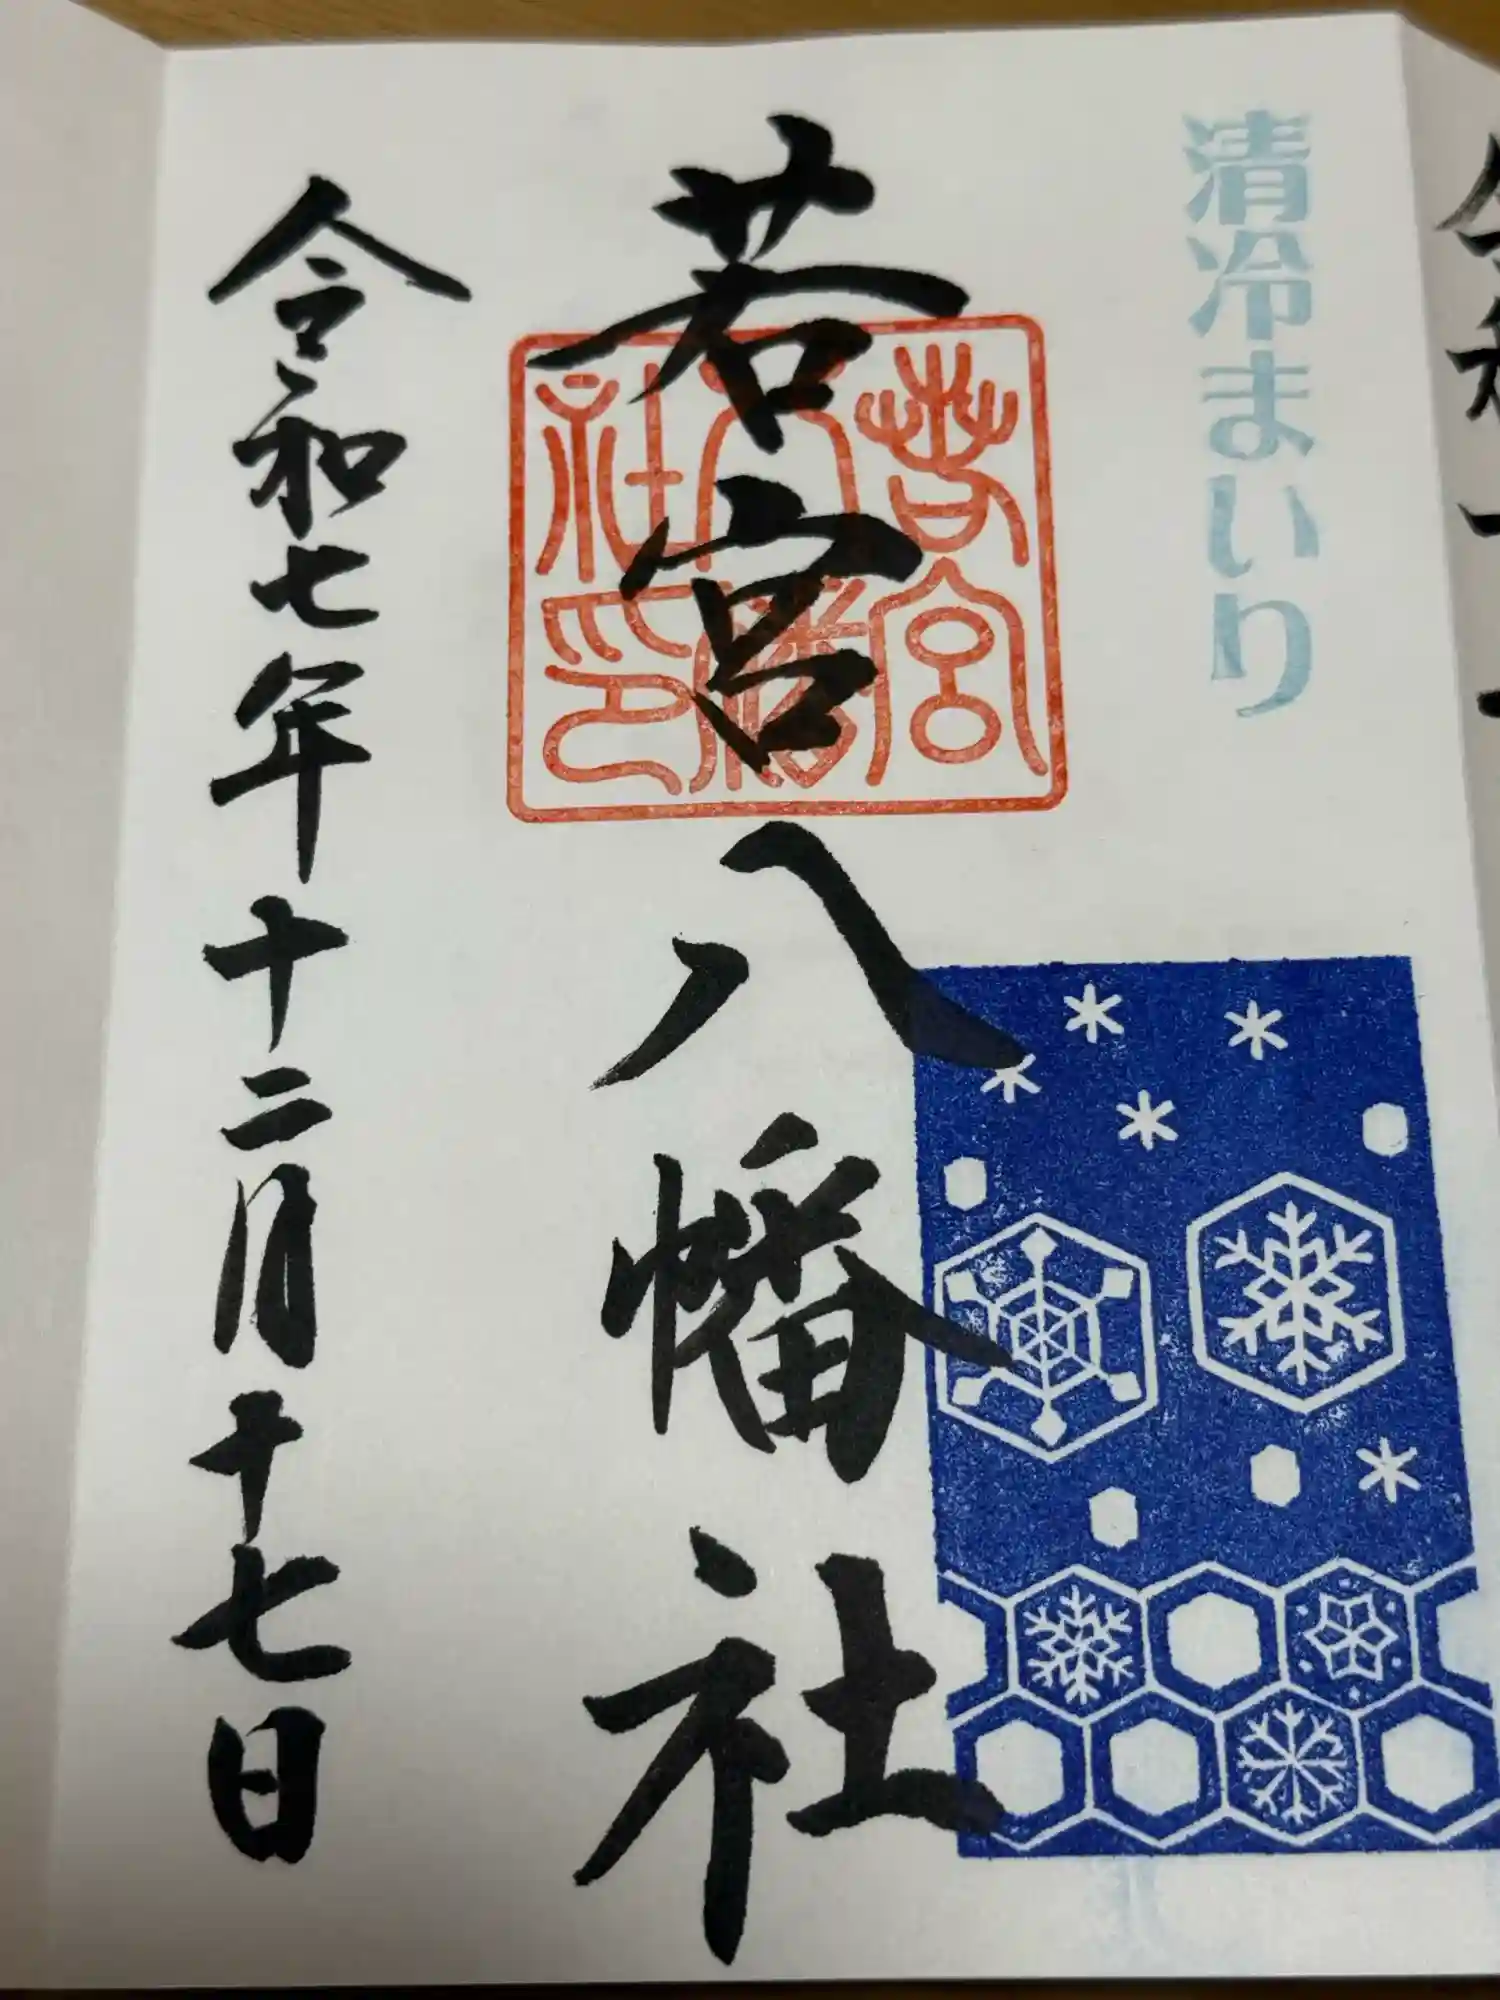 清冷まいり
若宮八幡社
若宮八幡社印
令和七年十二月十七日